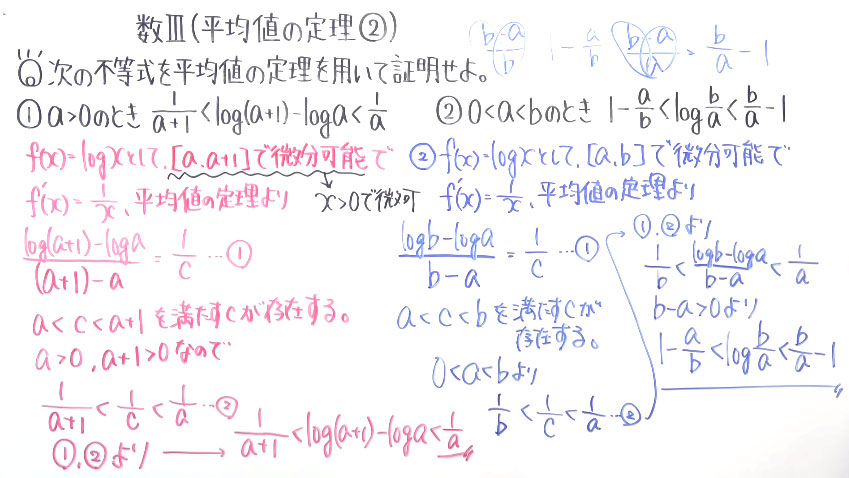 数Ⅲ(平均値の定理②)
次の不等式を平均値の定理を用いて証明せよ。
① a>0のとき 1/(a+1) < log(a+1) - log a < 1/a
② 0<a<bのとき 1 - a/b < log b/a < b/a - 1
(b-a)/b 1 - a/b (b-a)/a = b/a - 1
f(x)=log xとして、[a, a+1]で微分可能で
x>0で微可
f'(x)=1/x、平均値の定理より
(log(a+1) - log a)/((a+1) - a) = 1/c …①
a<c<a+1を満たすcが存在する。
a>0, a+1>0なので
1/(a+1) < 1/c < 1/a …②
①,②より → 1/(a+1) < log(a+1) - log a < 1/a
② f(x)=log xとして、[a, b]で微分可能で
f'(x)=1/x、平均値の定理より
(log b - log a)/(b - a) = 1/c …①
a<c<bを満たすcが
存在する。
0<a<bより
1/b < 1/c < 1/a …②
①,②より
1/b < (log b - log a)/(b - a) < 1/a
b-a>0より
1 - a/b < log b/a < b/a - 1